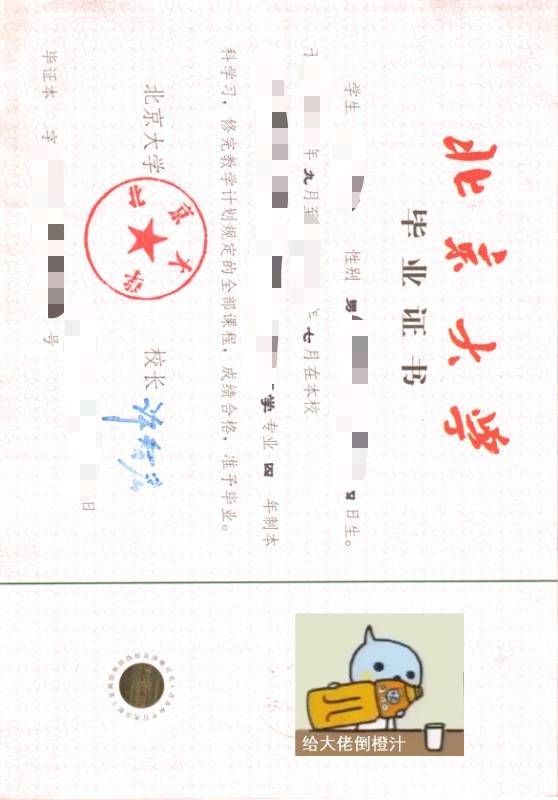 北京大学
毕业证书
学生 性别 男 日生。
年九月至 七月在本校
学专业 四 年制本
科学习，修完教学计划规定的全部课程，成绩合格，准予毕业。
北京大学 校长 许智宏
北京大学
日
毕证本 字 号
给大佬倒橙汁